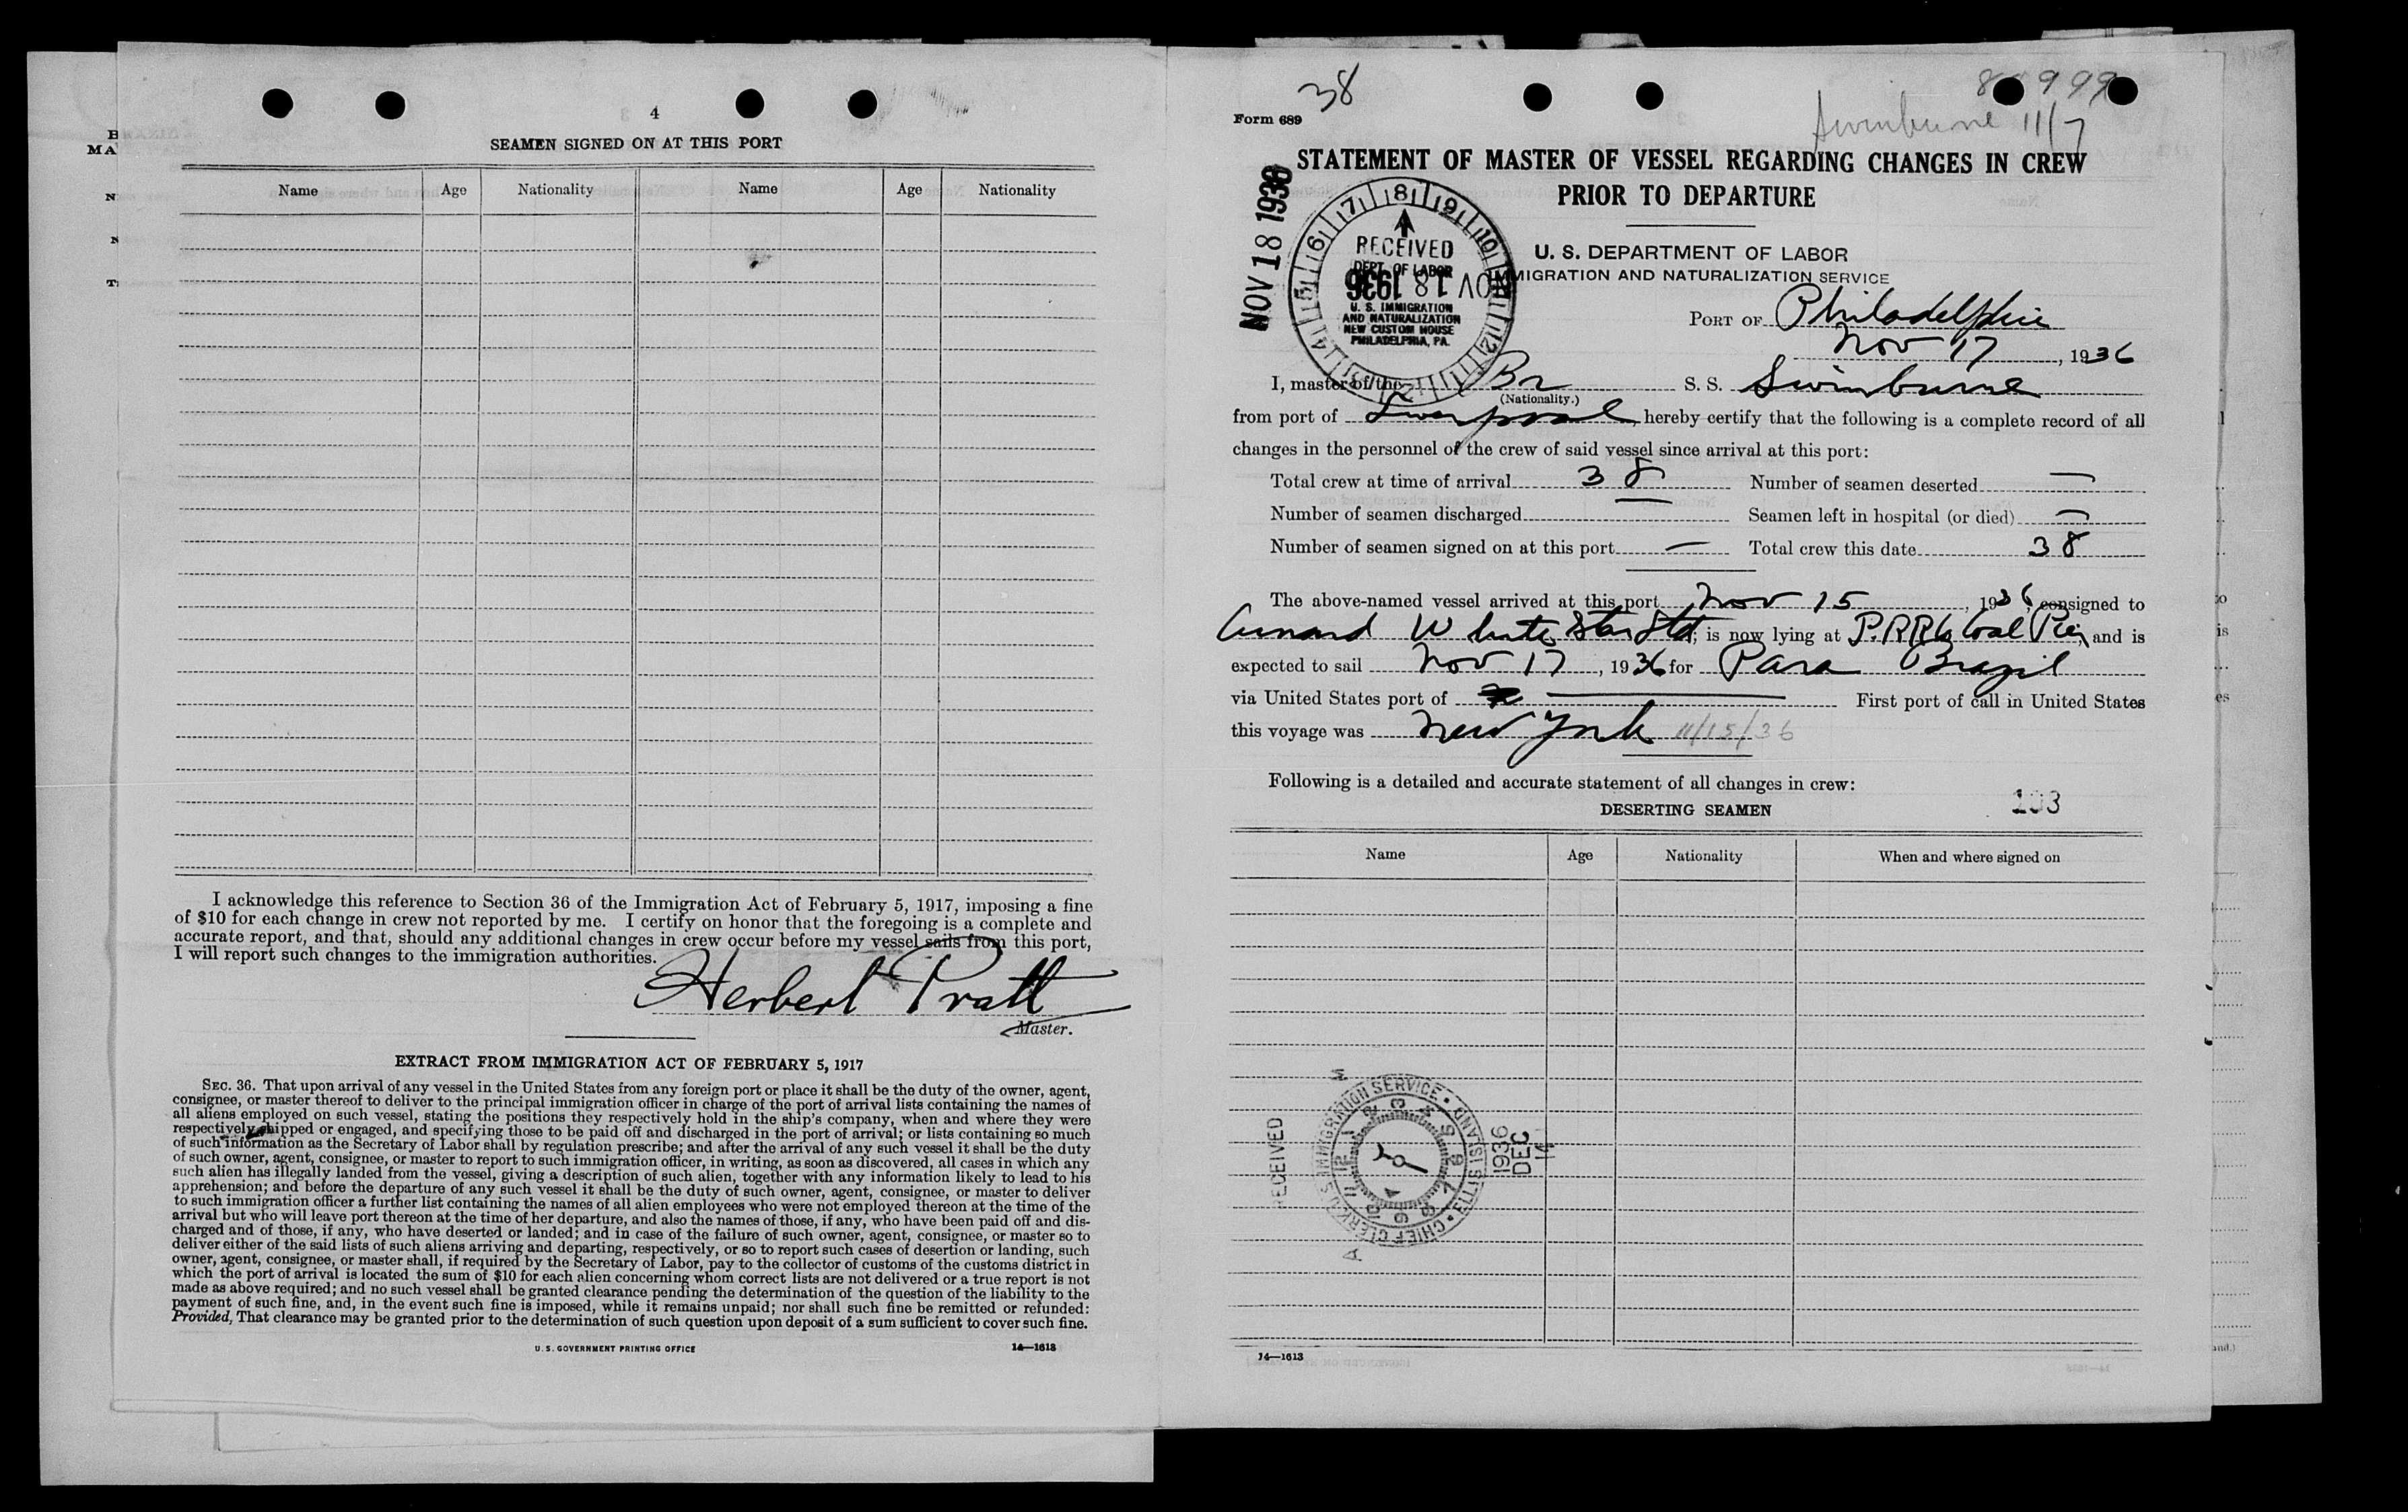 4
SEAMEN SIGNED ON AT THIS PORT
Name Age Nationality Name Age Nationality
I acknowledge this reference to Section 36 of the Immigration Act of February 5, 1917, imposing a fine
of $10 for each change in crew not reported by me. I certify on honor that the foregoing is a complete and
accurate report, and that, should any additional changes in crew occur before my vessel sails from this port,
I will report such changes to the immigration authorities.
Herbert Pratt
Master.
EXTRACT FROM IMMIGRATION ACT OF FEBRUARY 5, 1917
SEC. 36. That upon arrival of any vessel in the United States from any foreign port or place it shall be the duty of the owner, agent,
consignee, or master thereof to deliver to the principal immigration officer in charge of the port of arrival lists containing the names of
all aliens employed on such vessel, stating the positions they respectively hold in the ship's company, when and where they were
respectively shipped or engaged, and specifying those to be paid off and discharged in the port of arrival; or lists containing so much
of such information as the Secretary of Labor shall by regulation prescribe; and after the arrival of any such vessel it shall be the duty
of such owner, agent, consignee, or master to report to such immigration officer, in writing, as soon as discovered, all cases in which any
such alien has illegally landed from the vessel, giving a description of such alien, together with any information likely to lead to his
apprehension; and before the departure of any such vessel it shall be the duty of such owner, agent, consignee, or master to deliver
to such immigration officer a further list containing the names of all alien employees who were not employed thereon at the time of the
arrival but who will leave port thereon at the time of her departure, and also the names of those, if any, who have been paid off and dis-
charged and of those, if any, who have deserted or landed; and in case of the failure of such owner, agent, consignee, or master so to
deliver either of the said lists of such aliens arriving and departing, respectively, or so to report such cases of desertion or landing, such
owner, agent, consignee, or master shall, if required by the Secretary of Labor, pay to the collector of customs of the customs district in
which the port of arrival is located the sum of $10 for each alien concerning whom correct lists are not delivered or a true report is not
made as above required; and no such vessel shall be granted clearance pending the determination of the question of the liability to the
payment of such fine, and, in the event such fine is imposed, while it remains unpaid; nor shall such fine be remitted or refunded:
Provided, That clearance may be granted prior to the determination of such question upon deposit of a sum sufficient to cover such fine.
U. S. GOVERNMENT PRINTING OFFICE 14—1613
38
Form 689
Swinburne 11/7
STATEMENT OF MASTER OF VESSEL REGARDING CHANGES IN CREW
PRIOR TO DEPARTURE
NOV 18 1936
RECEIVED
DEPT. OF LABOR
NOV 18 1936
U. S. IMMIGRATION
AND NATURALIZATION
NEW CUSTOM HOUSE
PHILADELPHIA, PA.
U. S. DEPARTMENT OF LABOR
IMMIGRATION AND NATURALIZATION SERVICE
PORT OF Philadelphia
Nov 17, 1936
I, master of the Br S. S. Swinburne
(Nationality.)
from port of Liverpool, hereby certify that the following is a complete record of all
changes in the personnel of the crew of said vessel since arrival at this port:
Total crew at time of arrival 38 Number of seamen deserted —
Number of seamen discharged — Seamen left in hospital (or died) —
Number of seamen signed on at this port — Total crew this date 38
The above-named vessel arrived at this port Nov 15, 1936, consigned to
Cunard White Star Ltd; is now lying at P.RR Co Coal Pier, and is
expected to sail Nov 17, 1936 for Para Brazil
via United States port of — First port of call in United States
this voyage was New York 11/15/36
Following is a detailed and accurate statement of all changes in crew:
DESERTING SEAMEN
Name Age Nationality When and where signed on
RECEIVED
U.S. IMMIGRATION SERVICE • ELLIS ISLAND • CHIEF CLERK
1936
DEC
14
14—1613